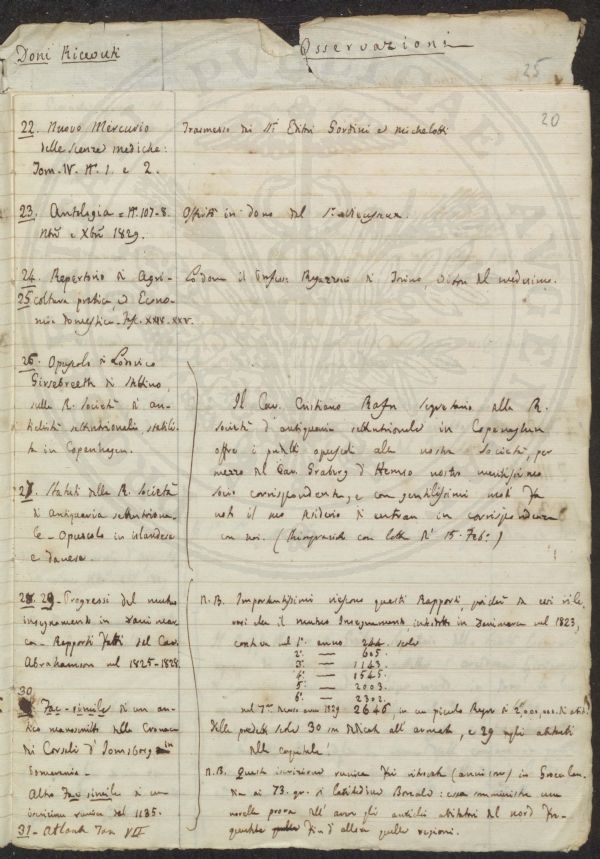 Doni Ricevuti
Osservazioni
25
20
22. Nuovo Mercurio
delle scienze mediche:
Tom. IV. N.° 1. e 2.
Trasmesso dai SS.i Editori Gordini e Michelotti
23. Antologia = N.° 107-8.
9bre e Xbre 1829.
Offerta in dono dal S.r Vieusseux.
24. Repertorio di Agri-
25 coltura pratica ed Econo-
mia domestica. Fasc. XXIV. XXV.
Lo dona il Profess. Ragazzoni di Torino, Editore del medesimo.
26. Opuscolo di Lodovico
Giesebrecht di Stettino,
sulla R. Società di an-
tichità settentrionale, stabili-
ta in Copenhagen.
27. Statuti della R. Società
di Antiquaria settentriona-
le - Opuscolo in islandese
e danese.
Il Cav. Cristiano Rafn segretario della R.
Società d'antiquaria settentrionale in Copenaghen
offre i predetti opuscoli alla nostra Società, per
mezzo del Cav. Graberg d'Hemso nostro meritissimo
socio corrispondente, e con gentilissimi modi fa
noti il suo desiderio di entrare in corrispondenza
con noi. (Ringraziato con lettera de' 15. Feb.°)
28. 29. Progressi del mutuo
insegnamento in Danimar-
ca - Rapporti fatti dal Cav.
Abrahamson nel 1825-1828.
N.B. Importantissimi riescono questi Rapporti, poichè da essi rile-
vasi che il mutuo Insegnamento introdotto in Danimarca nel 1823,
contava nel 1.° anno 244. scuole
2.° — 605.
3.° — 1143.
4.° — 1545.
5.° — 2003.
6.° — 2302.
nel 7.° anno 1829 2646 in un piccolo Regno di 2,000,000. di abitanti.
Delle predette scuole 30 son dedicate all'armata, e 29 agli abitanti
della capitale!
30
Fac-simile di un an-
tico manoscritto della Cronaca
dei Corsali d'Iomsborg in
Pomerania -
Altro Fac simile di un
iscrizione runica del 1135.
N.B. Questa iscrizione runica fu ritrovata in Groenlan-
dia ai 73. gr. di latitudine Boreale: essa somministra una
novella prova dell'aver gli antichi abitatori del nord fre-
quentate fin d'allora quelle regioni.
31 - Atlante Tom VII